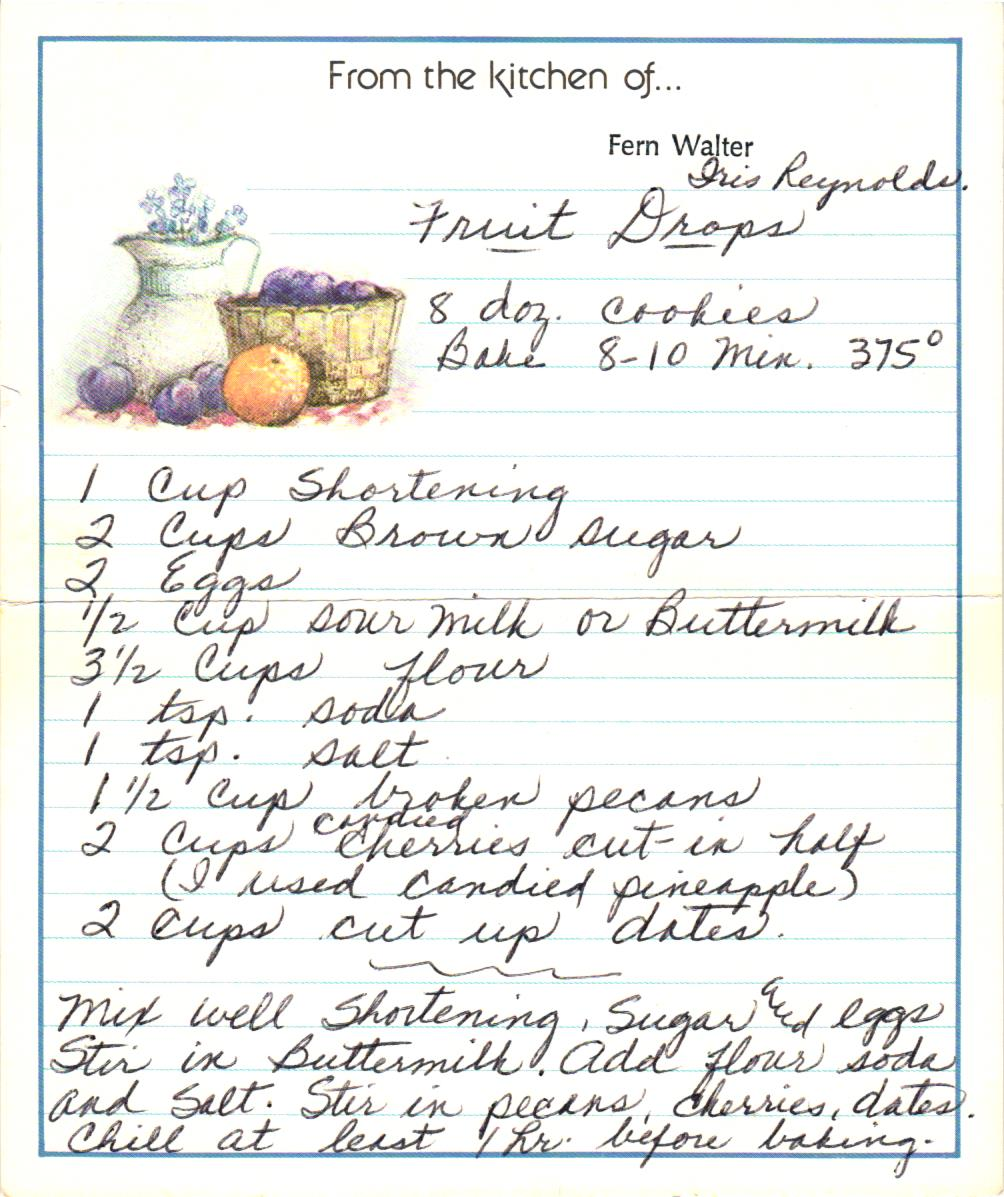 From the kitchen of...
Fern Walter
Iris Reynolds.
Fruit Drops
8 doz. cookies
Bake 8-10 Min. 375°
1 Cup Shortening
2 Cups Brown sugar
2 Eggs
1/2 Cup sour milk or Buttermilk
3 1/2 Cups flour
1 tsp. soda
1 tsp. salt
1 1/2 Cup broken pecans
2 Cups candied cherries cut in half
(I used candied pineapple)
2 cups cut up dates.
Mix well Shortening, Sugar and eggs
Stir in Buttermilk. Add flour soda
and Salt. Stir in pecans, cherries, dates.
Chill at least 1 hr. before baking.